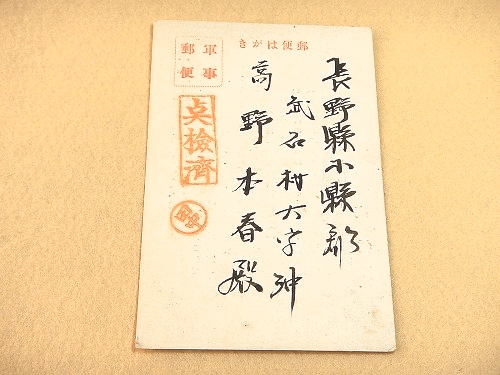 郵便はがき
軍事
郵便
点檢濟
長野縣小縣郡
武石村大字沖
高野本春殿